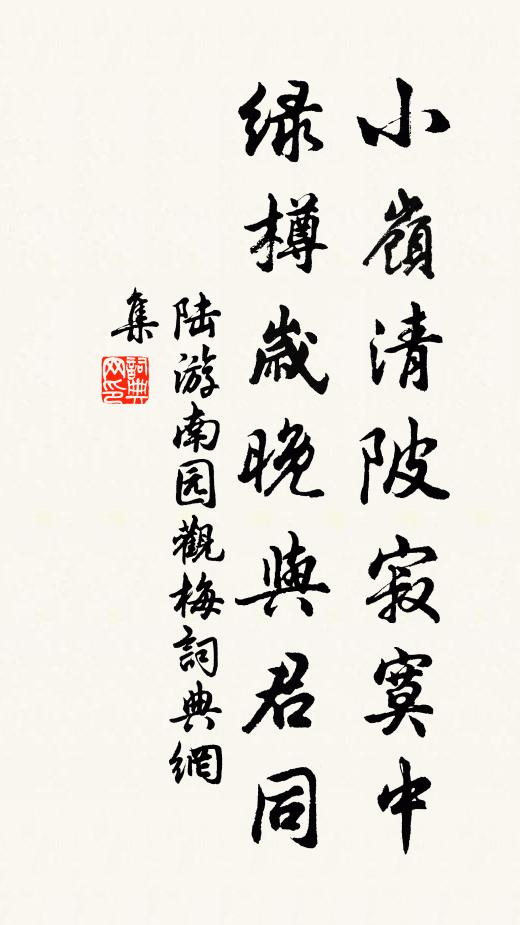 小嶺清陂寂寞中
绿樽歲晚與君同
陆游南园觀梅詞典網
集
詞典网印